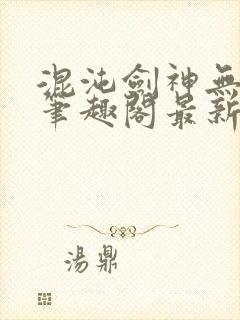 混沌劍神無
筆趣閣最新
湯鼎